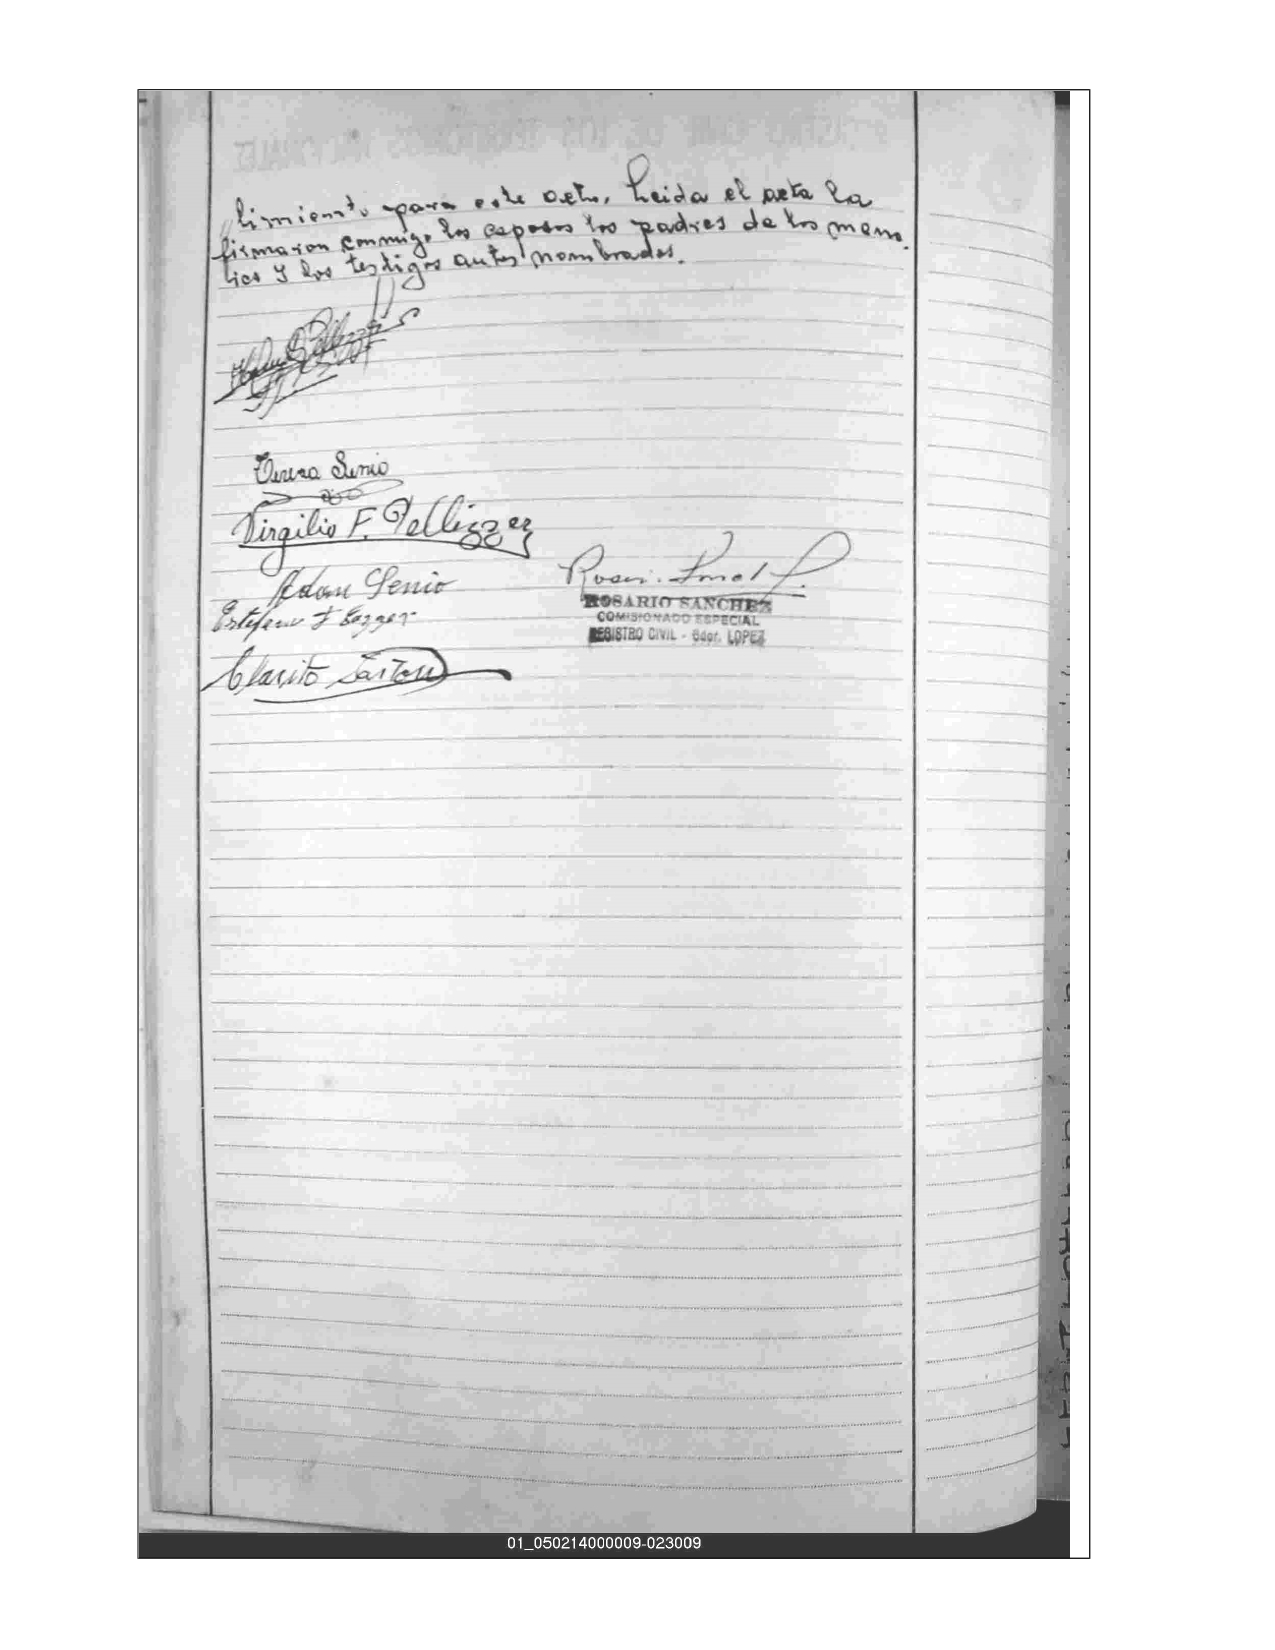 timiento para este acto, Leida el acta la
firmaron conmigo los esposos los padres de los meno
res y los testigos antes nombrados.
Teresa Senio
Virgilio F. Pellizzer
Adan Senio
Clarito Sartori
ROSARIO SANCHEZ
COMISIONADO ESPECIAL
REGISTRO CIVIL - Gdor. LOPEZ
01_050214000009-023009